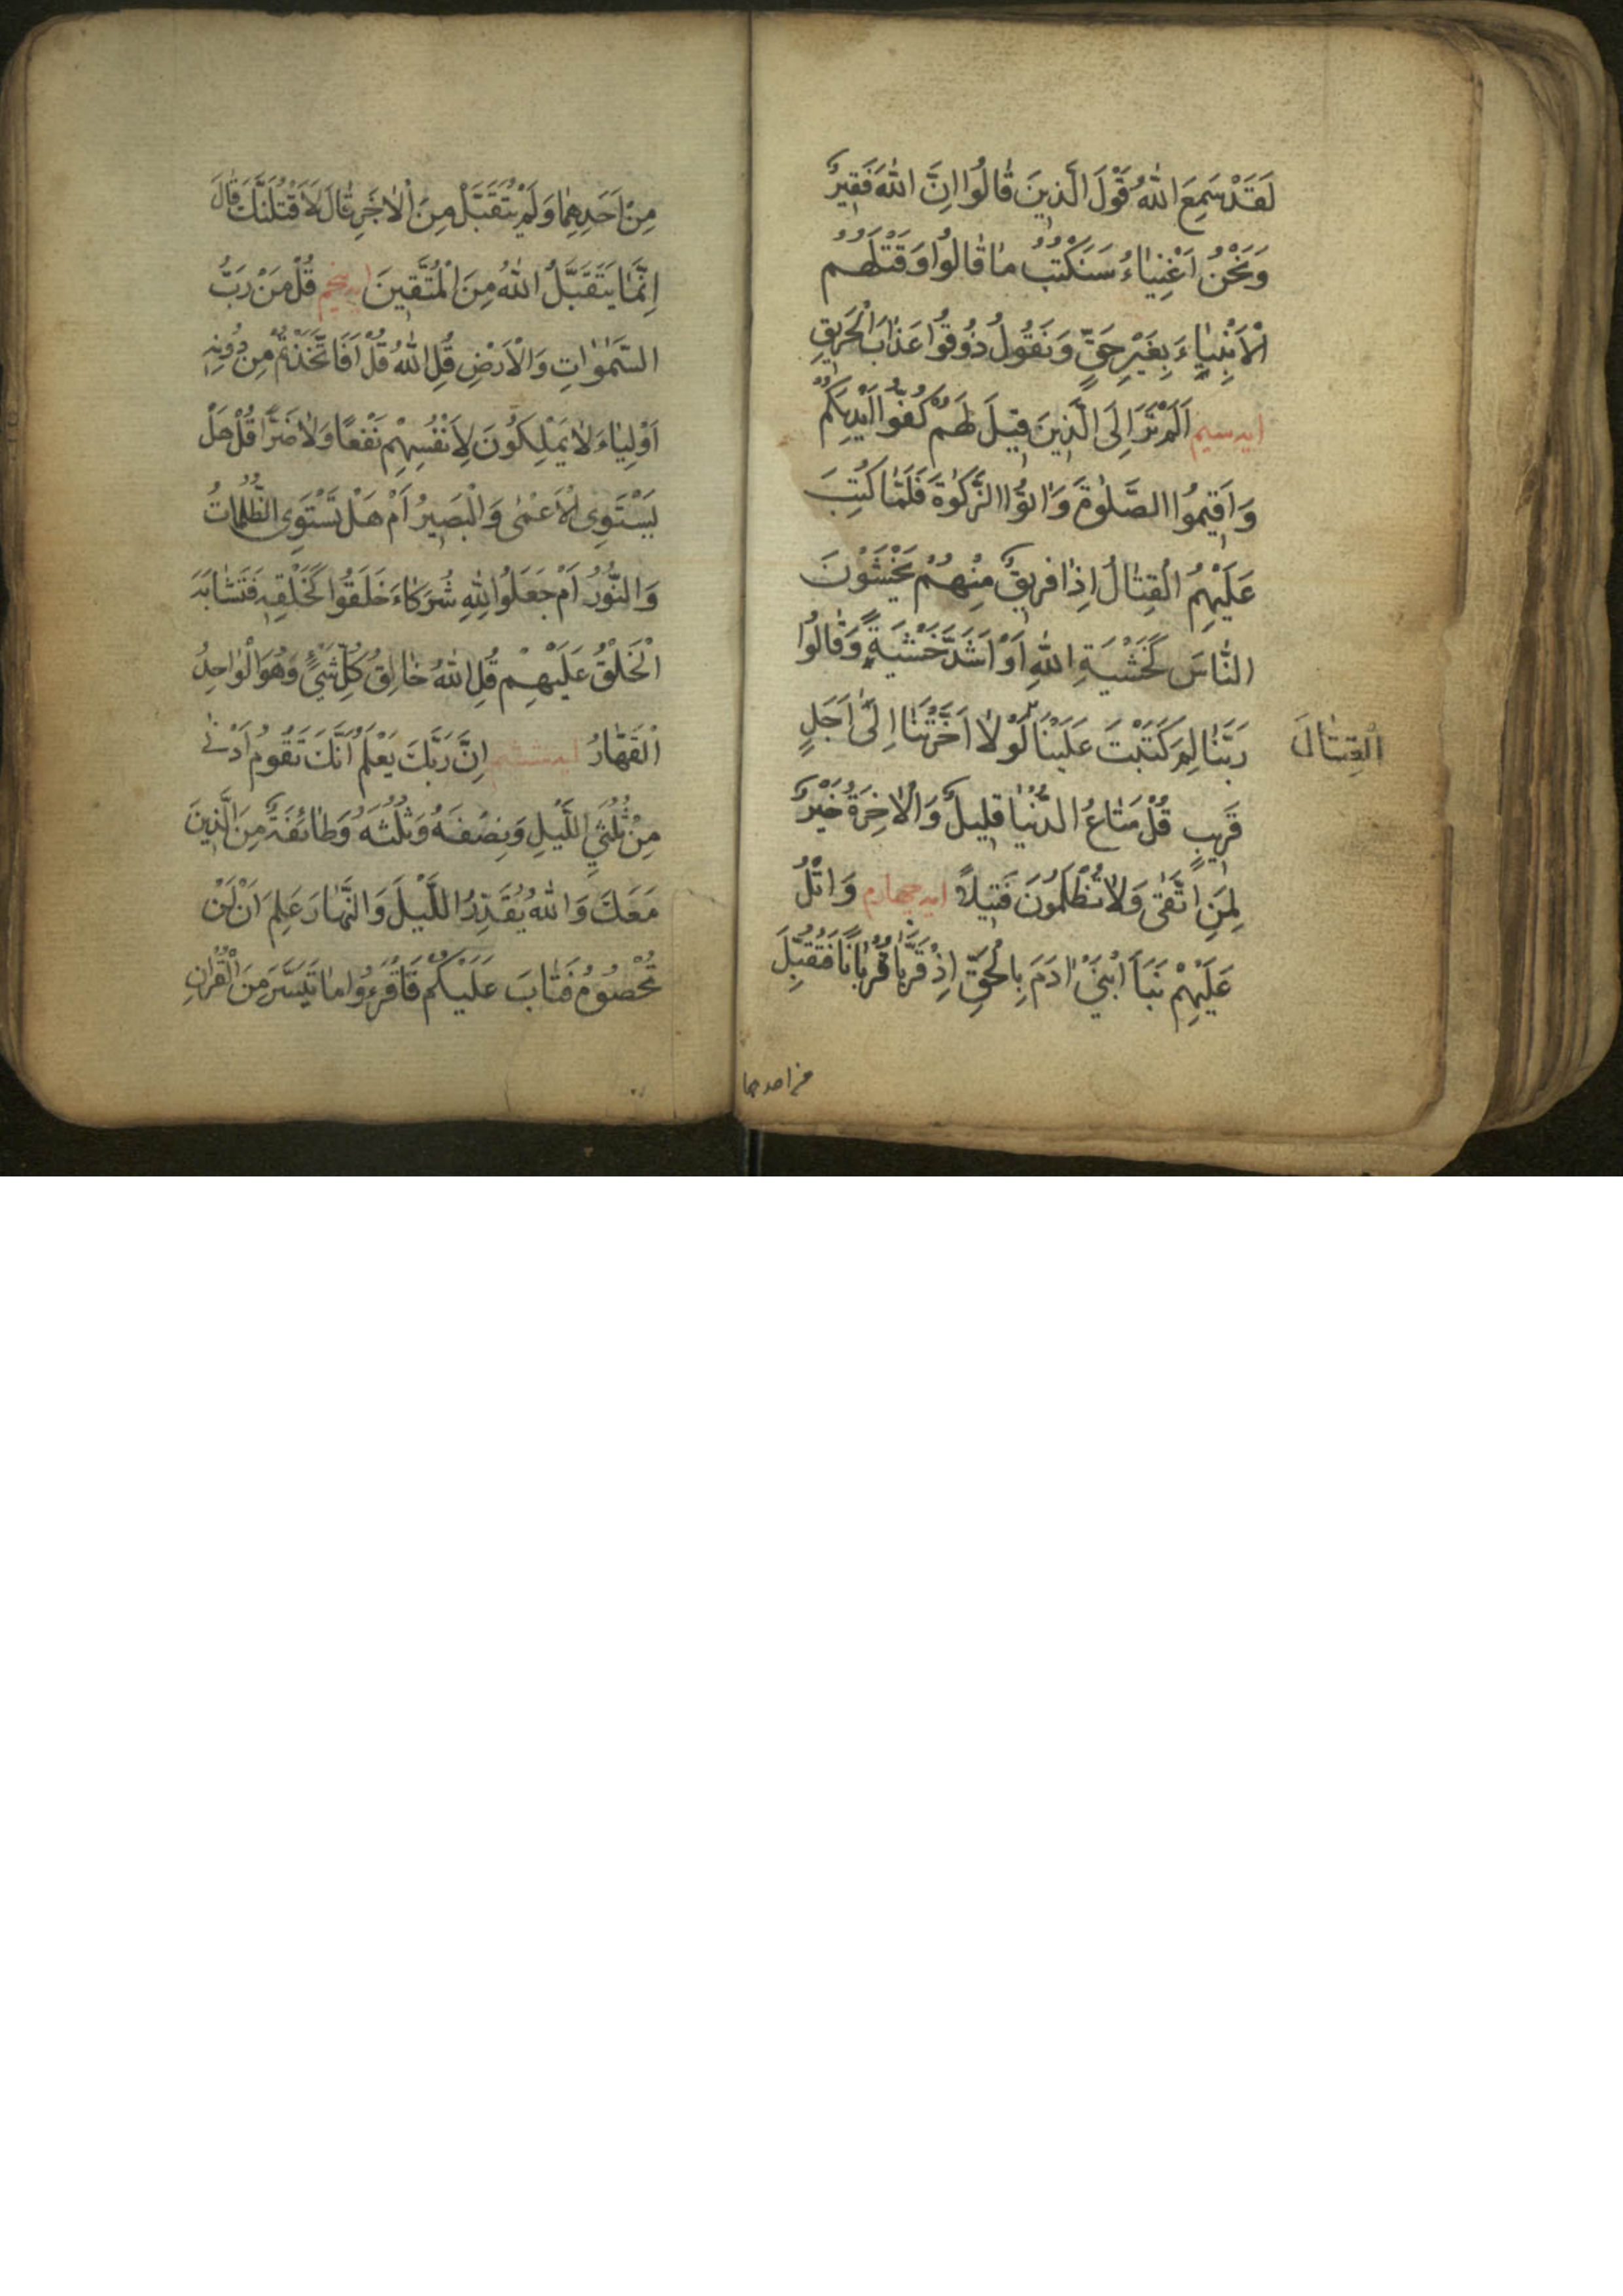 لَقَدْ سَمِعَ اللّٰهُ قَوْلَ الَّذِينَ قَالُوا اِنَّ اللّٰهَ فَقِيرٌ
وَنَحْنُ اَغْنِيَاءُ سَنَكْتُبُ مَا قَالُوا وَقَتْلَهُمُ
الْاَنْبِيَاءَ بِغَيْرِ حَقٍّ وَنَقُولُ ذُوقُوا عَذَابَ الْحَرِيقِ
ايه سيم اَلَمْ تَرَ اِلَى الَّذِينَ قِيلَ لَهُمْ كُفُّوا اَيْدِيَكُمْ
وَاَقِيمُوا الصَّلٰوةَ وَاٰتُوا الزَّكٰوةَ فَلَمَّا كُتِبَ
عَلَيْهِمُ الْقِتَالُ اِذَا فَرِيقٌ مِنْهُمْ يَخْشَوْنَ
النَّاسَ كَخَشْيَةِ اللّٰهِ اَوْ اَشَدَّ خَشْيَةً وَقَالُوا
رَبَّنَا لِمَ كَتَبْتَ عَلَيْنَا لَوْلَا اَخَّرْتَنَا اِلٰى اَجَلٍ
الْقِتَالَ
قَرِيبٍ قُلْ مَتَاعُ الدُّنْيَا قَلِيلٌ وَالْاٰخِرَةُ خَيْرٌ
لِمَنِ اتَّقٰى وَلَا تُظْلَمُونَ فَتِيلًا ايه چهارم وَاتْلُ
عَلَيْهِمْ نَبَاَ ابْنَيْ اٰدَمَ بِالْحَقِّ اِذْ قَرَّبَا قُرْبَانًا فَتُقُبِّلَ
من احدهما
مِنْ اَحَدِهِمَا وَلَمْ يُتَقَبَّلْ مِنَ الْاٰخَرِ قَالَ لَاَقْتُلَنَّكَ قَالَ
اِنَّمَا يَتَقَبَّلُ اللّٰهُ مِنَ الْمُتَّقِينَ ايه پنجم قُلْ مَنْ رَبُّ
السَّمٰوَاتِ وَالْاَرْضِ قُلِ اللّٰهُ قُلْ اَفَاتَّخَذْتُمْ مِنْ دُونِهِ
اَوْلِيَاءَ لَا يَمْلِكُونَ لِاَنْفُسِهِمْ نَفْعًا وَلَا ضَرًّا قُلْ هَلْ
يَسْتَوِى الْاَعْمٰى وَالْبَصِيرُ اَمْ هَلْ تَسْتَوِى الظُّلُمَاتُ
وَالنُّورُ اَمْ جَعَلُوا لِلّٰهِ شُرَكَاءَ خَلَقُوا كَخَلْقِهِ فَتَشَابَهَ
الْخَلْقُ عَلَيْهِمْ قُلِ اللّٰهُ خَالِقُ كُلِّ شَيْءٍ وَهُوَ الْوَاحِدُ
الْقَهَّارُ ايه ششم اِنَّ رَبَّكَ يَعْلَمُ اَنَّكَ تَقُومُ اَدْنٰى
مِنْ ثُلُثَيِ اللَّيْلِ وَنِصْفَهُ وَثُلُثَهُ وَطَائِفَةٌ مِنَ الَّذِينَ
مَعَكَ وَاللّٰهُ يُقَدِّرُ اللَّيْلَ وَالنَّهَارَ عَلِمَ اَنْ لَنْ
تُحْصُوهُ فَتَابَ عَلَيْكُمْ فَاقْرَءُوا مَا تَيَسَّرَ مِنَ الْقُرْاٰنِ